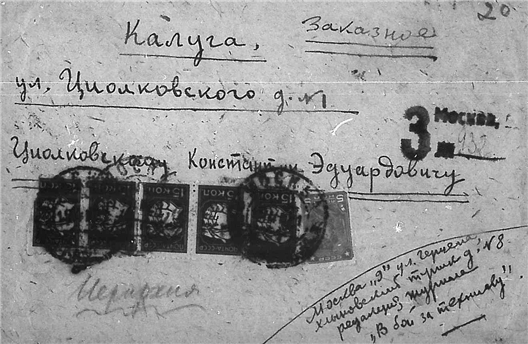 20
Калуга,
Заказное
ул. Циолковского д. №1
З Москва,
№ 932
Циолковскому Константину Эдуардовичу
15 КОП
15 КОП
5 КОП
Москва „9" ул. герцена
хлыновский тупик д. №8
редакция журнала
„В бой за технику".